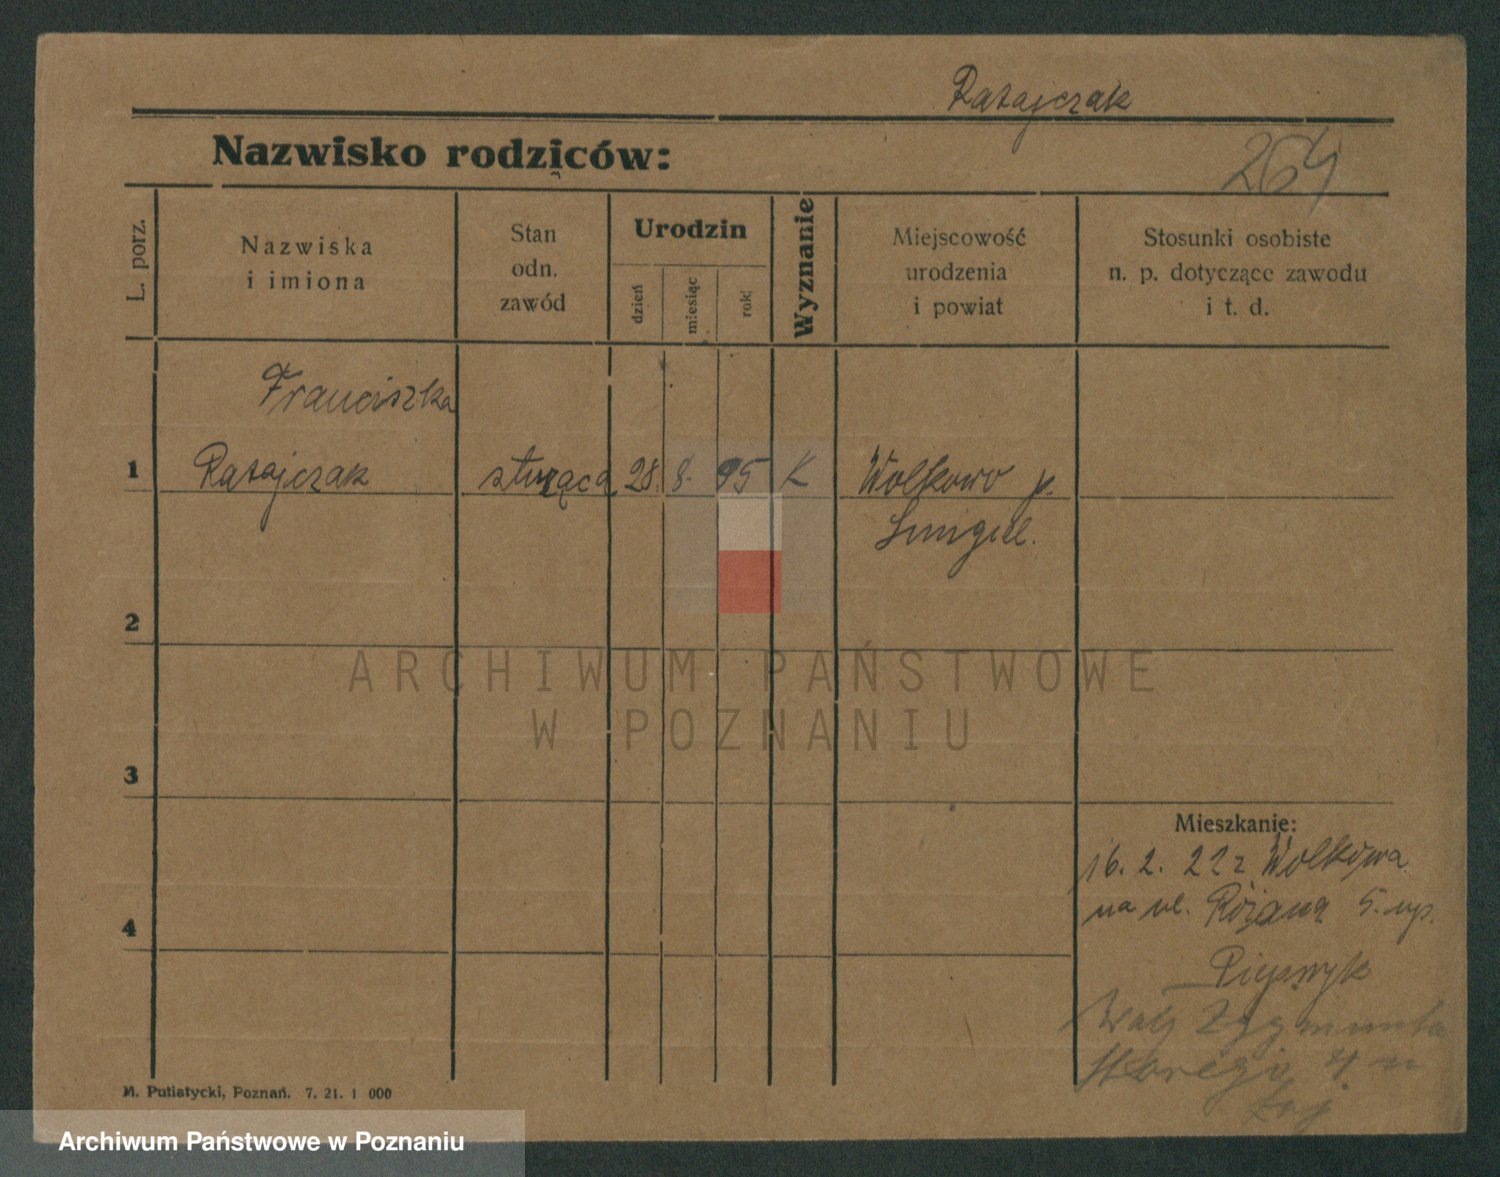 Ratajczak
Nazwisko rodziców:
264
L. porz.
Nazwiska
i imiona
Stan
odn.
zawód
Urodzin
dzień
miesiąc
rok
Wyznanie
Miejscowość
urodzenia
i powiat
Stosunki osobiste
n. p. dotyczące zawodu
i t. d.
Franciszka
1 Ratajczak służąca 28. 8. 95 K Wolkowo p.
Smigiel.
2
ARCHIWUM PAŃSTWOWE
W POZNANIU
3
Mieszkanie:
16. 2. 22 z Wolkowa
na ul. Różana 5. up.
4
Wały Zygmunta
Starego 4
M. Putiatycki, Poznań. 7. 21. 1 000
Archiwum Państwowe w Poznaniu